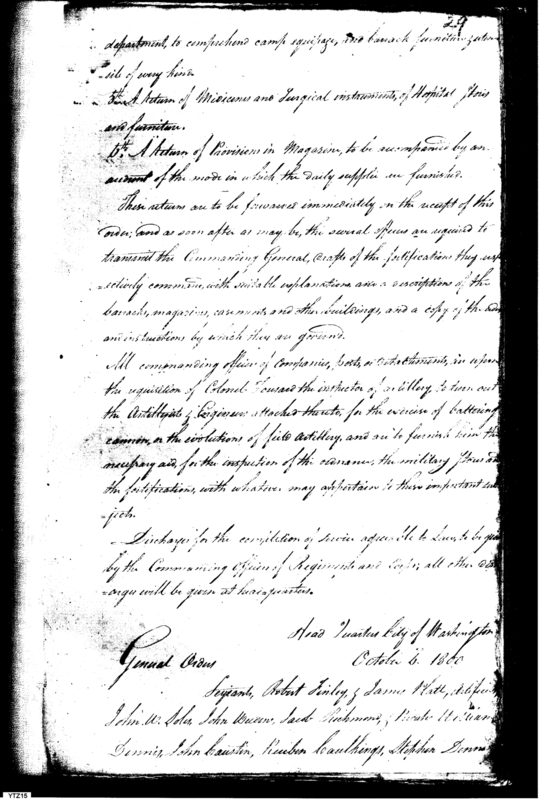 29
department, to comprehend camp equipage, and barack furniture &
sils of every kind
5th. A Return of Medicenes and Surgical instruments, of Hospital Stores
and furniture.
6th. A Return of Provisions in Magazine, to be accompanied by an
account of the mode in which the daily supplies are furnished.
These returns are to be forwarded immediately on the receipt of this
order; and as soon after as may be, the several officers are required to
transmit the Commanding General, drafts of the fortifications they resp
-ectively command, with suitable explanations and a description of the
baracks, magazines, casements and other buildings, and a copy of the orders
and instructions by which they are governd.
All commanding officers of companies, posts, or detachments, are upon
the requisition of Colonel Toussard the inspector of artillery, to turn out
the Artillerists & Engineers attached thereto, for the exercise of battering
cannon, or the evolutions of field Artillery, and are to furnish him the
necessary aid, for the inspection of the ordnance, the military Stores and
the fortifications, with whatever may appertain to these important sub
-jects.
Discharges for the completion of service agreeable to Law, to be given
by the Commanding Officers of Regiments and Corps; all other disch
-arges will be given at headquarters.
Head Quarters City of Washington
General Orders October 6 1800
Serjeants, Robert Finley, & James Platt, Artificers
John W. John Jacob Richmond, & Privates William
Dennis, John Caustin, Reuben Caulkings, Stephen
YTZ15